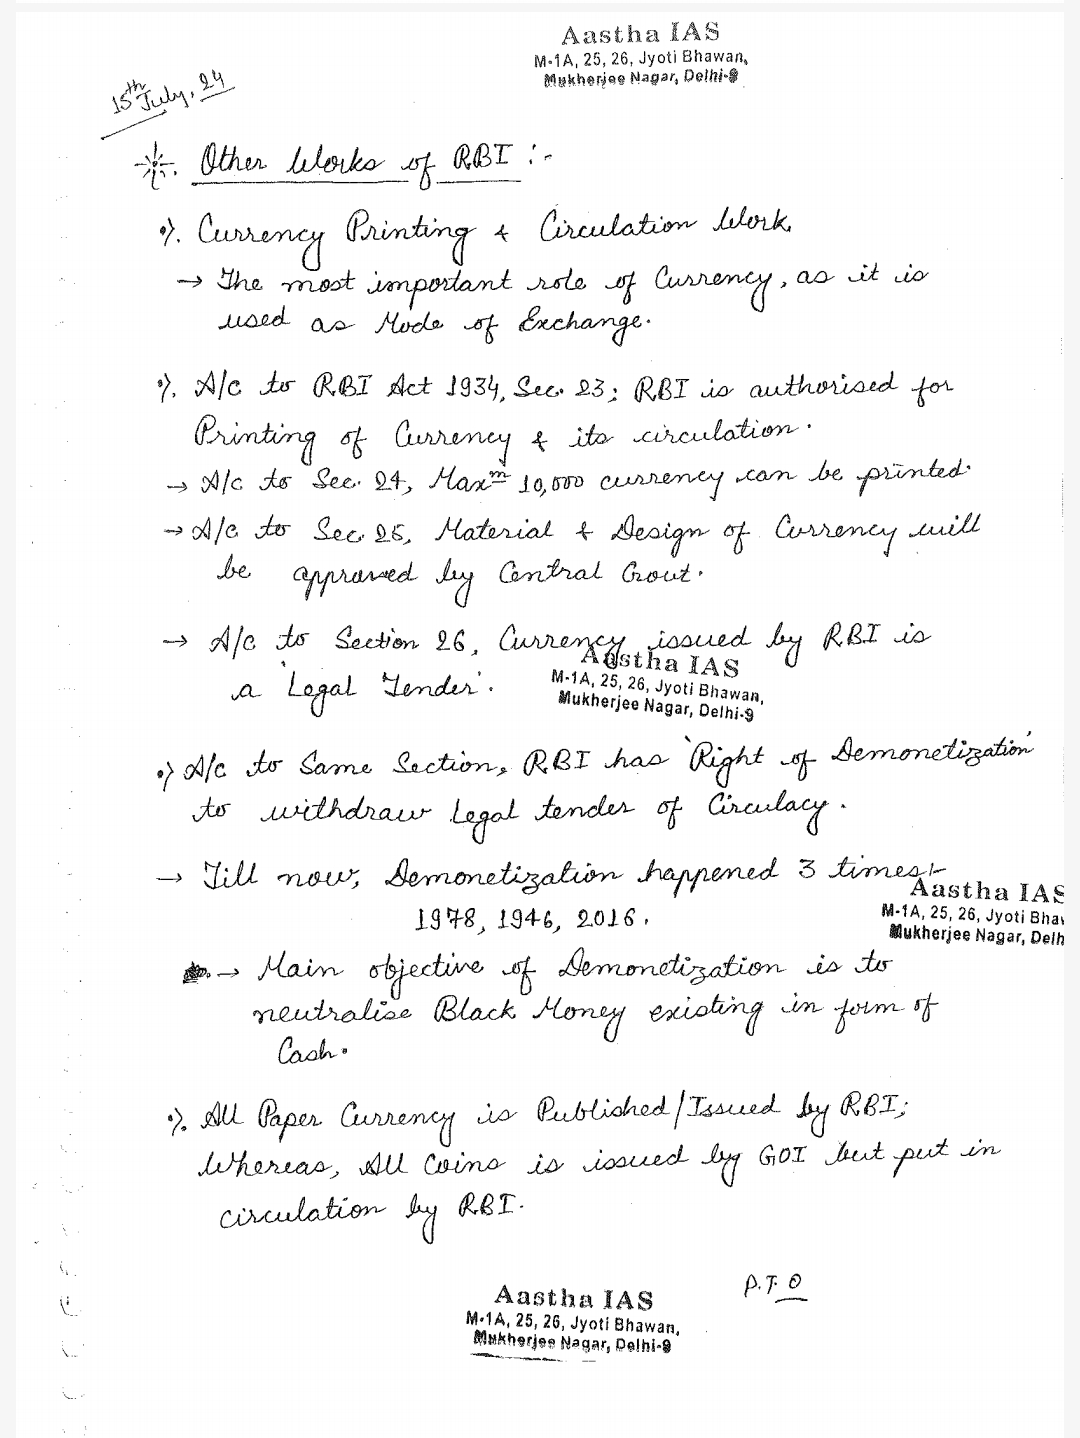 Aastha IAS
M-1A, 25, 26, Jyoti Bhawan,
Mukherjee Nagar, Delhi-9
15th July, 24
Other Works of RBI :-
Currency Printing & Circulation Work.
→ The most important role of Currency, as it is
used as Mode of Exchange.
A/c to RBI Act 1934, Sec. 23; RBI is authorised for
Printing of Currency & its circulation.
→ A/c to Sec. 24, Maxm 10,000 currency can be printed.
→ A/c to Sec. 25, Material & Design of Currency will
be approved by Central Govt.
→ A/c to Section 26, Currency issued by RBI is
a 'Legal Tender'.
Aastha IAS
M-1A, 25, 26, Jyoti Bhawan,
Mukherjee Nagar, Delhi-9
A/c to Same Section, RBI has 'Right of Demonetization'
to withdraw Legal tender of Circulacy.
→ Till now, Demonetization happened 3 times:-
1978, 1946, 2016.
Aastha IAS
M-1A, 25, 26, Jyoti Bha
Mukherjee Nagar, Delh
→ Main objective of Demonetization is to
neutralise Black Money existing in form of
Cash.
All Paper Currency is Published/Issued by RBI;
Whereas, All Coins is issued by GOI but put in
circulation by RBI.
P.T.O
Aastha IAS
M-1A, 25, 26, Jyoti Bhawan,
Mukherjee Nagar, Delhi-9